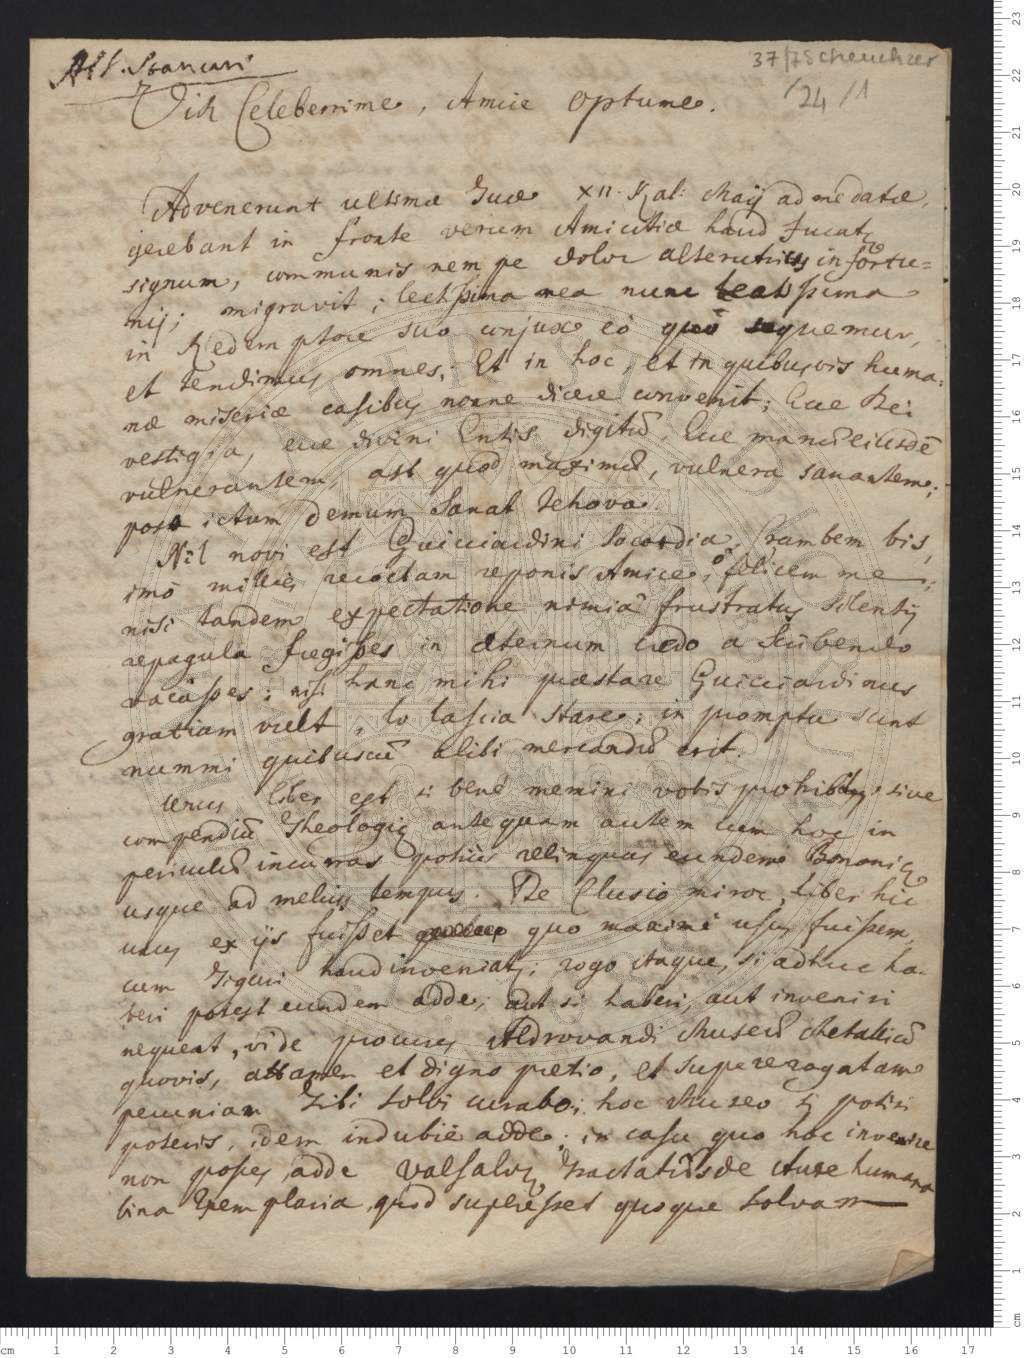 37/7 Scheuchzer
24/1
Vir Celeberrime, Amice optume.
Advenerunt ultimæ Tuæ XII. Kal: Maij ad me datæ,
gerebant in fronte verum Amicitiæ haud fucatę
signum, communis nempe dolor alterutrius infortu=
nij; migravit; lectissima mea nunc beatissima
in Redemptore suo conjuxe eò quò sequemur,
et tendimus omnes. Et in hoc, et in quibusvis huma-
næ miseriæ casibus nonne dicere convenit; Ecce Dei
vestigia, ecce divini Entis digitũ, Ecce manũ eiusdẽ
vulnerantem, ast quod maximũ, vulnera sanantem;
post ictum demum Sanat Jehova.
Nil novi est Guicciardini Socordia, Crambem bis,
imò millies recoctam reponis Amice, ò felicem me,
nisi tandem expectatione nimiâ frustratus silentij
repagula fregisses in æternum credo a scribendo
vacâsses; nisi hanc mihi præstare Guicciardinus
gratiam vult, lo lascia stare; in promptu sunt
nummi quibuscũ alibi mercandũ erit.
Unus liber est si benè memini vobis prohibitus sive
compendiũ Theologię antequam autem cum hoc in
periculũ incurras potiùs relinquas eundem Bononię
usque ad melius tempus. De Clusio miror, liber hic
unus ex ijs fuisset quo maximè usus fuissem,
cum Tiguri haud inveniatur; rogo itaque, si adhuc ha-
beri potest eundem adde; aut si haberi, aut inveniri
nequeat, vide procures Aldrovandi Museũ Metallicũ
quovis, attamen et digno pretio, et supererogatam
pecuniam Tibi solvi curabo; hoc Museo si potiri
poteris, idem indubiè adde; in casu quo hoc invenire
non posses, adde Valsalvę Tractatus de Aure humana
bina Exemplaria, quod superesset quoque solvam